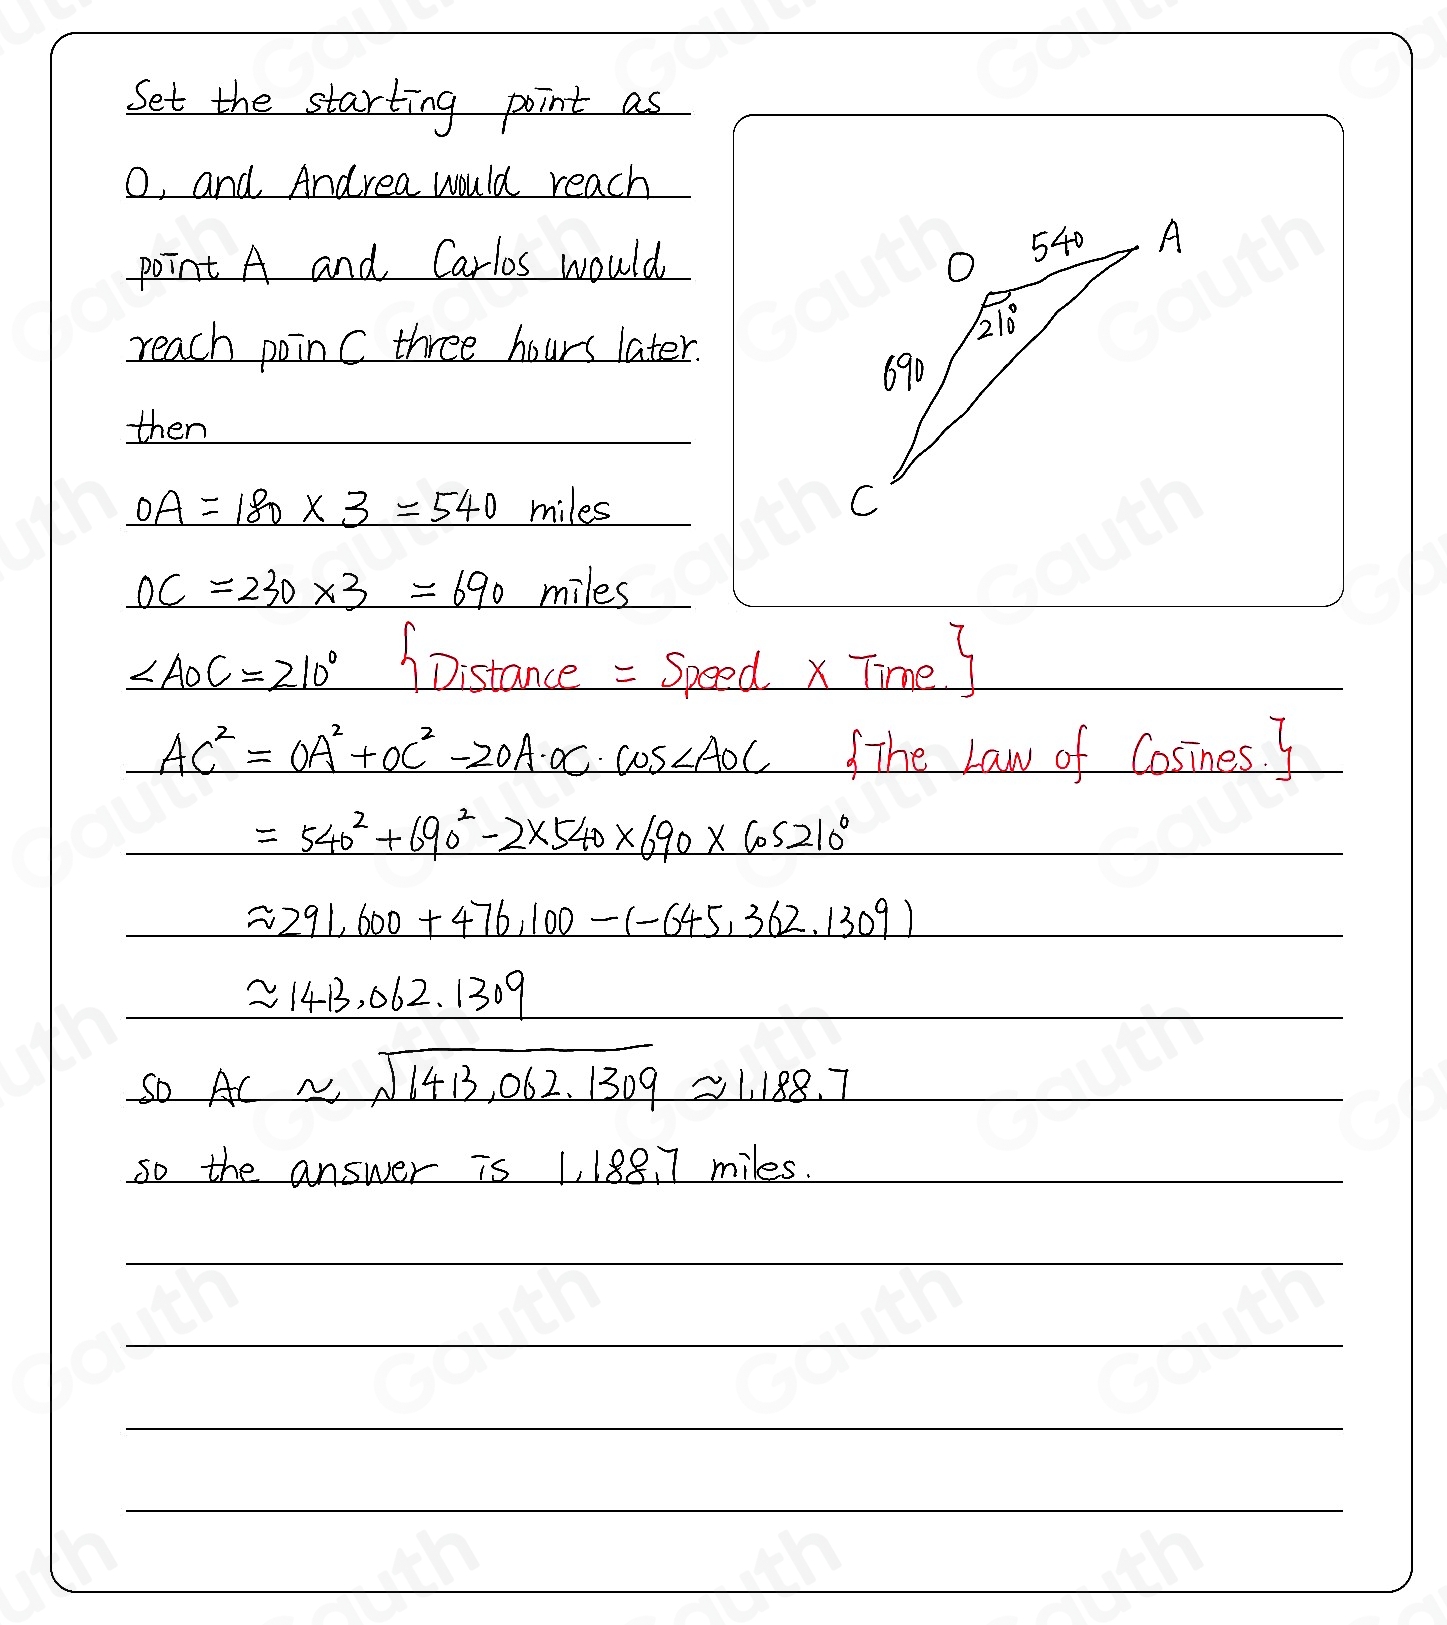 Set the starting point as
O, and Andrea would reach
point A and Carlos would
reach poin C three hours later.
then
OA = 180 × 3 = 540 miles
OC = 230 × 3 = 690 miles
∠AOC = 210° {Distance = Speed × Time.}
AC² = OA² + OC² - 2OA·OC·cos∠AOC {The Law of Cosines.}
= 540² + 690² - 2×540×690×cos210°
≈ 291,600 + 476,100 - (-645,362.1309)
≈ 1413,062.1309
so AC ≈ √1413,062.1309 ≈ 1,188.7
so the answer is 1,188.7 miles.
O 540 A
210°
690
C
Gauth